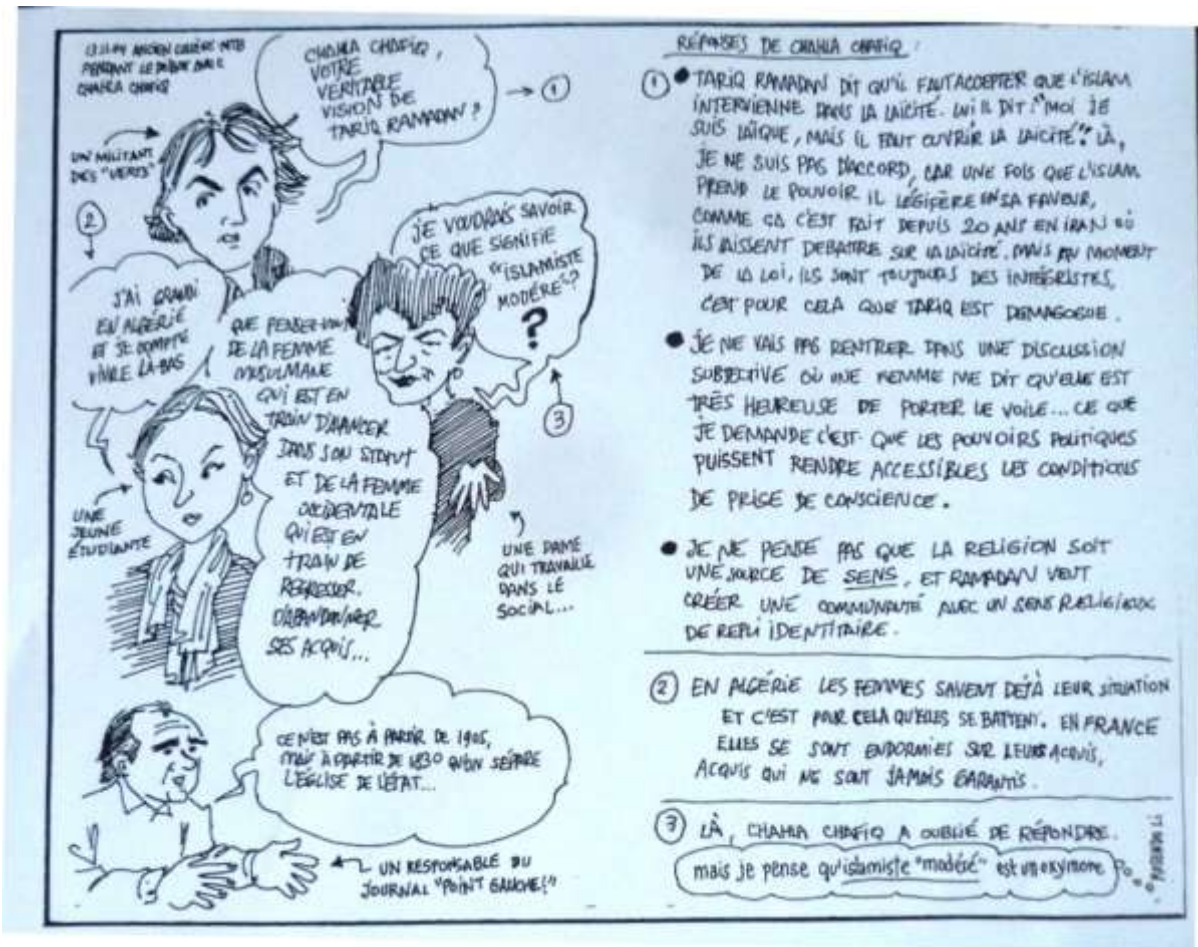 PENDANT LE DEBAT AVEC
CHAHLA CHAFIQ
CHAHLA CHAFIQ,
VOTRE
VERITABLE
VISION DE
TARIQ RAMADAN?
→ 1
UN MILITANT
DES "VERTS"
2
J'AI GRANDI
EN ALGÉRIE
ET JE COMPTE
VIVRE LÀ-BAS
QUE PENSEZ-VOUS
DE LA FEMME
MUSULMANE
QUI EST EN
TRAIN D'AVANCER
DANS SON STATUT
ET DE LA FEMME
OCCIDENTALE
QUI EST EN
TRAIN DE
REGRESSER.
D'ABANDONNER
SES ACQUIS...
UNE
JEUNE
ÉTUDIANTE
JE VOUDRAIS SAVOIR
CE QUE SIGNIFIE
"ISLAMISTE
MODÉRÉ"?
?
3
UNE DAME
QUI TRAVAILLE
DANS LE
SOCIAL...
CE N'EST PAS À PARTIR DE 1905,
MAIS À PARTIR DE 1830 QU'ON SÉPARE
L'ÉGLISE DE L'ÉTAT...
UN RESPONSABLE DU
JOURNAL "POINT GAUCHE!"
RÉPONSES DE CHAHLA CHAFIQ :
1 ● TARIQ RAMADAN DIT QU'IL FAUT ACCEPTER QUE L'ISLAM
INTERVIENNE DANS LA LAÏCITÉ. LUI IL DIT: "MOI JE
SUIS LAÏQUE, MAIS IL FAUT OUVRIR LA LAICITÉ". LÀ,
JE NE SUIS PAS D'ACCORD, CAR UNE FOIS QUE L'ISLAM
PREND LE POUVOIR IL LÉGIFÈRE EN SA FAVEUR,
COMME ÇA C'EST FAIT DEPUIS 20 ANS EN IRAN OÙ
ILS LAISSENT DEBATTRE SUR LA LAICITÉ. MAIS AU MOMENT
DE LA LOI, ILS SONT TOUJOURS DES INTÉGRISTES,
C'EST POUR CELA QUE TARIQ EST DEMAGOGUE.
● JE NE VAIS PAS RENTRER DANS UNE DISCUSSION
SUBJECTIVE OÙ UNE FEMME ME DIT QU'ELLE EST
TRÈS HEUREUSE DE PORTER LE VOILE... CE QUE
JE DEMANDE C'EST QUE LES POUVOIRS POLITIQUES
PUISSENT RENDRE ACCESSIBLES LES CONDITIONS
DE PRISE DE CONSCIENCE.
● JE NE PENSE PAS QUE LA RELIGION SOIT
UNE SOURCE DE SENS, ET RAMADAN VEUT
CRÉER UNE COMMUNAUTÉ AVEC UN SENS RELIGIEUX
DE REPLI IDENTITAIRE.
2 EN ALGÉRIE LES FEMMES SAVENT DÉJÀ LEUR SITUATION
ET C'EST POUR CELA QU'ELLES SE BATTENT. EN FRANCE
ELLES SE SONT ENDORMIES SUR LEURS ACQUIS,
ACQUIS QUI NE SONT JAMAIS GARANTIS.
3 LÀ, CHAHLA CHAFIQ A OUBLIÉ DE RÉPONDRE.
mais je pense qu'islamiste "modéré" est un oxymore